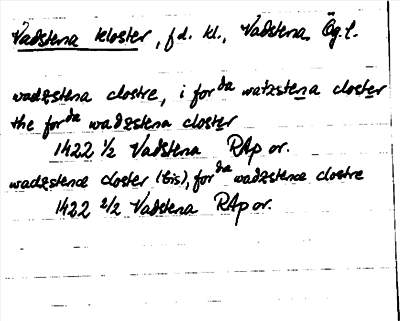 Vadstena kloster, f d. kl., Vadstena, Ög. l.
wadzstena clostre, i for da watzstena closter
the for da wadzstena closter
1422 1/2 Vadstena RAp or.
wadzstence closter (bis), for da wadzstence clostre
1422 2/2 Vadstena RAp or.